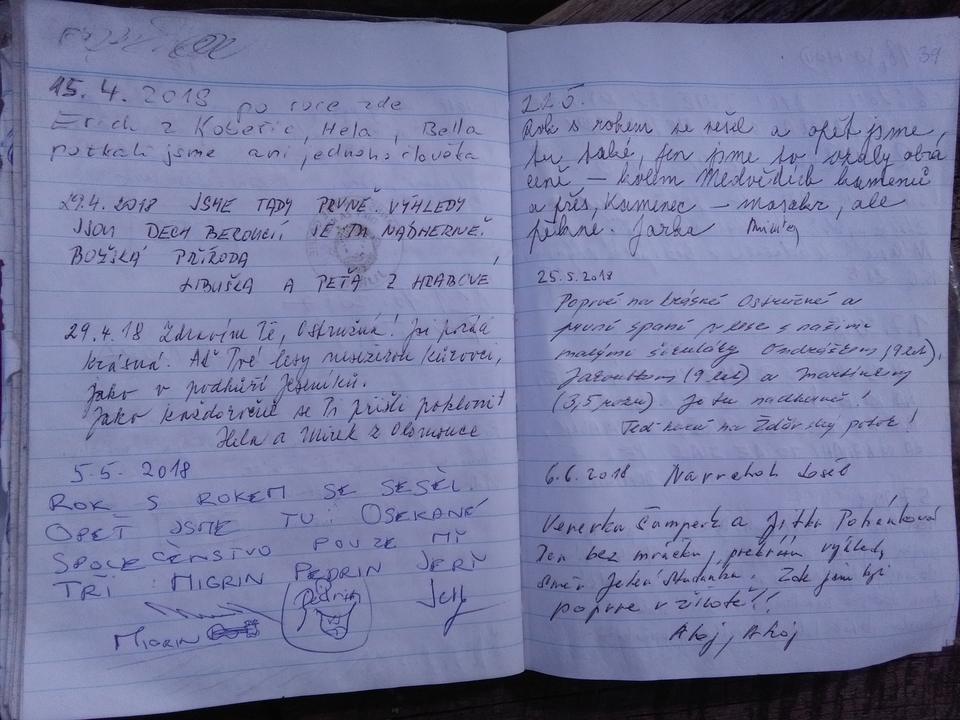 39
15.4.2018 po roce zde
Erich z Kobeřic, Hela, Bella
potkali jsme ani jednoho člověka
29.4.2018 JSME TADY PRVNĚ VÝHLEDY
JSOU DECH BEROUCÍ, JE TU NÁDHERNĚ.
BOŽSKÁ PŘÍRODA
LIBUŠKA A PEŤA Z HRABOVÉ,
29.4.18 Zdravím Tě, Ostružná! Jsi pořád
krásná. Ať Tvé lesy nesežerou kůrovci,
jako v podhůří Jeseníků.
Jako každoročně se Ti přišli poklonit
Hela a Mirek z Olomouce
5.5. 2018
ROK S ROKEM SE SEŠEL.
OPĚT JSME TU. OSEKANÉ
SPOLEČENSTVO POUZE MI
TŘI MIGRIN PEDRIN JERI
Pedrin
MIGRIN
22.5.
Rok s rokem se sešel a opět jsme,
tu také, jen jsme to vzaly obrá
ceně — kolem Medvědích kamenů
a přes, Kamenec — masakr, ale
pěkné. Jarka
25.5.2018
Poprvé na krásné Ostružné a
první spaní v lese s našimi
malými Ondrášem (9 let),
(9 let) a Martinem
(3,5 roku) Je tu nádherně!
Teď hurá na Žďárský potok!
6.6.2018 Na vrchol
Veverka Šumperk a Jitka Pohánková
Den bez mráčku, překrásný výhled,
směr Jelení studánka. Zde jsme byli
poprvé v životě!!
Ahoj, Ahoj